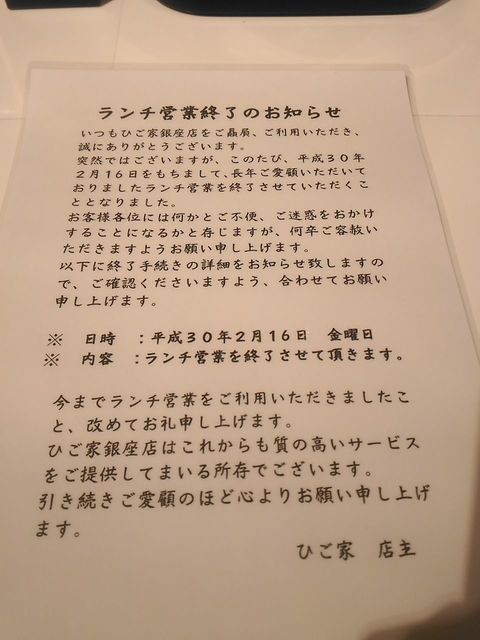 ランチ営業終了のお知らせ
いつもひご家銀座店をご贔屓、ご利用いただき、
誠にありがとうございます。
突然ではございますが、このたび、平成30年
2月16日をもちまして、長年ご愛顧いただいて
おりましたランチ営業を終了させていただくこ
ととなりました。
お客様各位には何かとご不便、ご迷惑をおかけ
することになるかと存じますが、何卒ご容赦い
ただきますようお願い申し上げます。
以下に終了手続きの詳細をお知らせ致しますの
で、ご確認くださいますよう、合わせてお願い
申し上げます。
※ 日時 :平成30年2月16日 金曜日
※ 内容 :ランチ営業を終了させて頂きます。
今までランチ営業をご利用いただきましたこ
と、改めてお礼申し上げます。
ひご家銀座店はこれからも質の高いサービス
をご提供してまいる所存でございます。
引き続きご愛顧のほど心よりお願い申し上げ
ます。
ひご家 店主